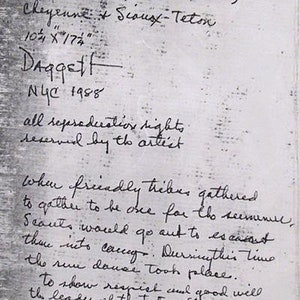 Cheyenne & Sioux-Teton
10¼" x 17¼"
Daggett
NYC 1988
all reproduction rights
reserved by the artist
When friendly tribes gathered
to gather to be one for the summer.
Scouts would go out to escourt
them into camp. Durring this time
the sun dance took place.
to show respect and good will
the leaders of the